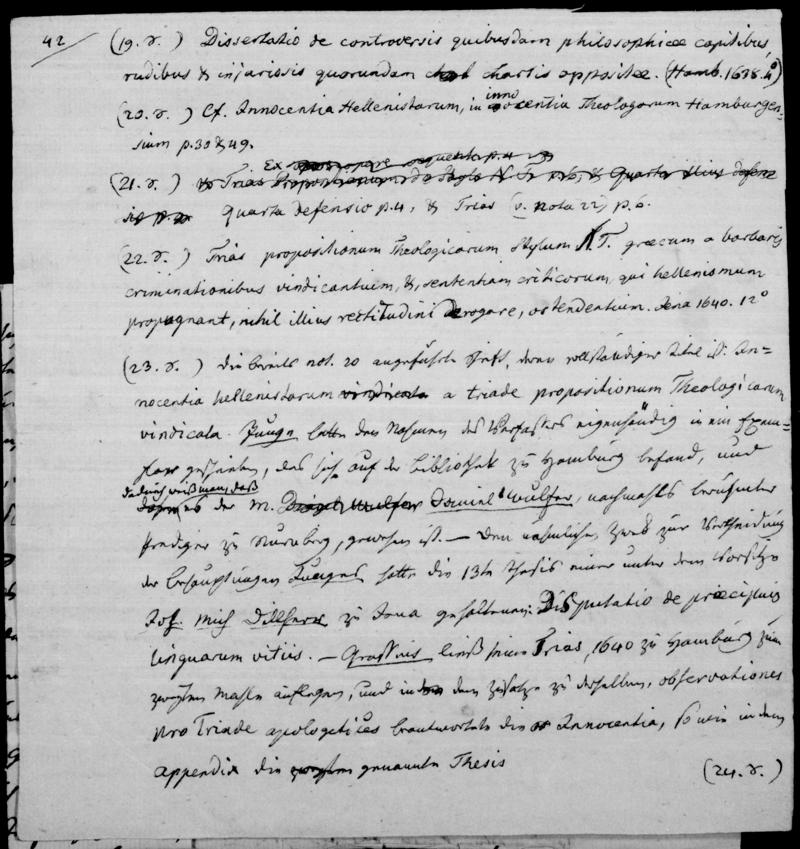 42
(19. r.) Dissertatio de controversis quibusdam philosophicae capitibus,
rudibus & injuriosis quorundam chartis oppositae. (Hamb. 1638. 4°)
(20. r.) Cf. Innocentia Hellenistarum, in innocentia Theologorum Hamburgen-
sium p. 30 & 49.
Ex sequenti p. 4
(21. r.) Trias Propositionum de Stylo N. T. p. 6, & Quarta illius defens
Quarta defensio p. 4, & Trias (v. nota 22) p. 6.
(22. r.) Trias propositionum Theologicarum stylum N. T. graecum a barbaris
criminationibus vindicantium, &, sententiam criticorum, qui hellenismum
propugnant, nihil illius rectitudini derogare, ostendentium. Jena 1640. 12°
(23. r.) die bereits not. 20 angeführte Schrift, deren vollständiger Titel ist: In-
nocentia hellenistarum vindicata a triade propositionum Theologicarum
vindicata. Junge hatte den Nahmen des Verfassers eigenhändig in ein Exem-
plar geschrieben, das sich auf der Bibliothek zu Hamburg befand, und
dadurch weiß man, daß
es der M. Daniel Wulfer Daniel Wulfer, nachmahls berühmter
Prediger zu Nürnberg, gewesen ist. — Den nähmlichen Zweck zur Vertheidigung
der Behauptungen Junges hatte die 13te Thesis einer unter dem Vorsitze
Joh. Mich Dillherrs zu Jena gehaltenen: Disputatio de praecipuis
linguarum vitiis. — Grossius ließ seine Trias, 1640 zu Hamburg zum
zweyten Mahle auflegen, und in dem Zusatze zu derselben, observationes
pro Triade apologeticas beantwortete die Innocentia, so wie in dem
appendix die zweyten genannte Thesis
(24. r.)